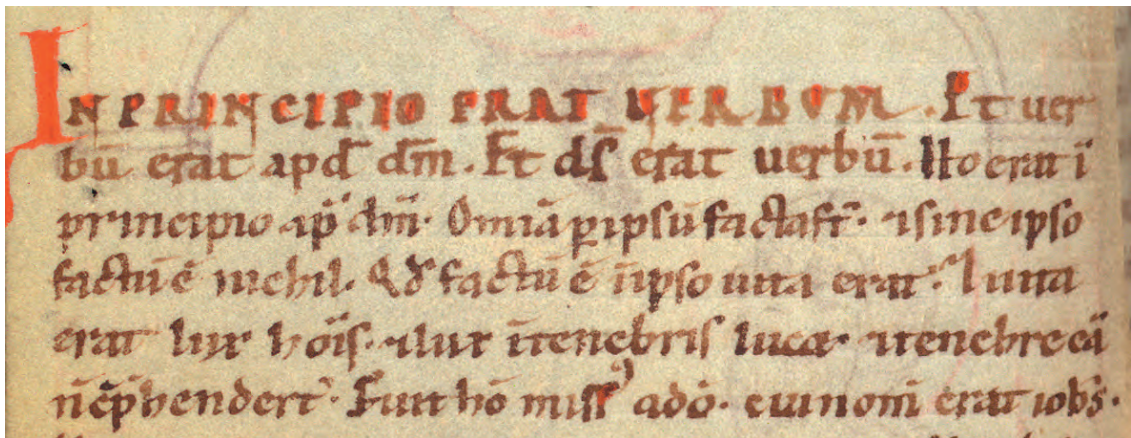 IN PRINCIPIO ERAT VERBUM. Et uer
bū erat apd̄ dm̄. Et ds̄ erat uerbū. Hoc erat ī
principio ap̄ dm̄. Om̄ia ꝑ ipsū facta st̄. ⁊ sine ipso
factū ē nichil. Qd̄ factū ē ī ipso uita erat. ⁊ uita
erat lux hoīs. ⁊ lux ī tenebris lucet. ⁊ tenebre eā
n̄ cp̄hendert̄. Fuit hō miss᾿ a dō. cui nom̄ erat iohs̄.